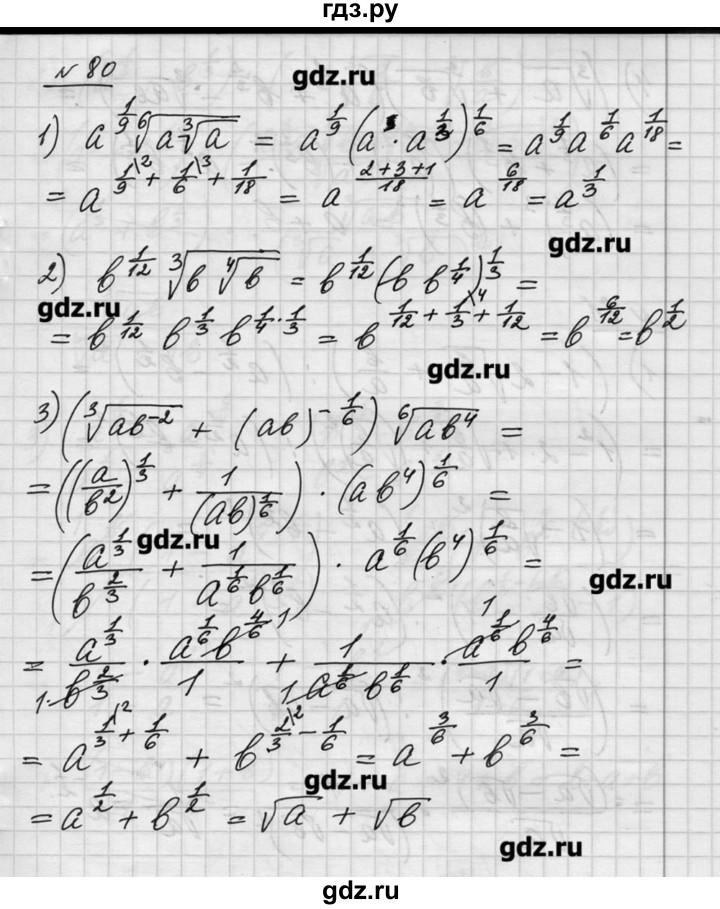 гдз.ру
№ 80
gdz.ru
1) a^{1/9} \sqrt[6]{a\sqrt[3]{a}} = a^{1/9} (a · a^{1/3})^{1/6} = a^{1/9} a^{1/6} a^{1/18} =
= a^{1/9\2 + 1/6\3 + 1/18} = a^{(2+3+1)/18} = a^{6/18} = a^{1/3}
gdz.ru
2) b^{1/12} \sqrt[3]{b \sqrt[4]{b}} = b^{1/12} (b b^{1/4})^{1/3} =
gdz.ru
= b^{1/12} b^{1/3} b^{1/4 · 1/3} = b^{1/12 + 1/3\4 + 1/12} = b^{6/12} = b^{1/2}
gdz.ru
3) (\sqrt[3]{ab^{-2}} + (ab)^{-1/6}) \sqrt[6]{ab^4} =
= ((a/b^2)^{1/3} + 1/(ab)^{1/6}) · (ab^4)^{1/6} =
gdz.ru
= (a^{1/3}/b^{2/3} + 1/(a^{1/6} b^{1/6})) · a^{1/6} (b^4)^{1/6} =
gdz.ru
= a^{1/3}/b^{2/3} · a^{1/6} b^{4/6}/1 + 1/(a^{1/6} b^{1/6}) · a^{1/6} b^{4/6}/1 =
= a^{1/3\2 + 1/6} + b^{2/3\2 - 1/6} = a^{3/6} + b^{3/6} =
gdz.ru
= a^{1/2} + b^{1/2} = √a + √b
gdz.ru
gdz.ru